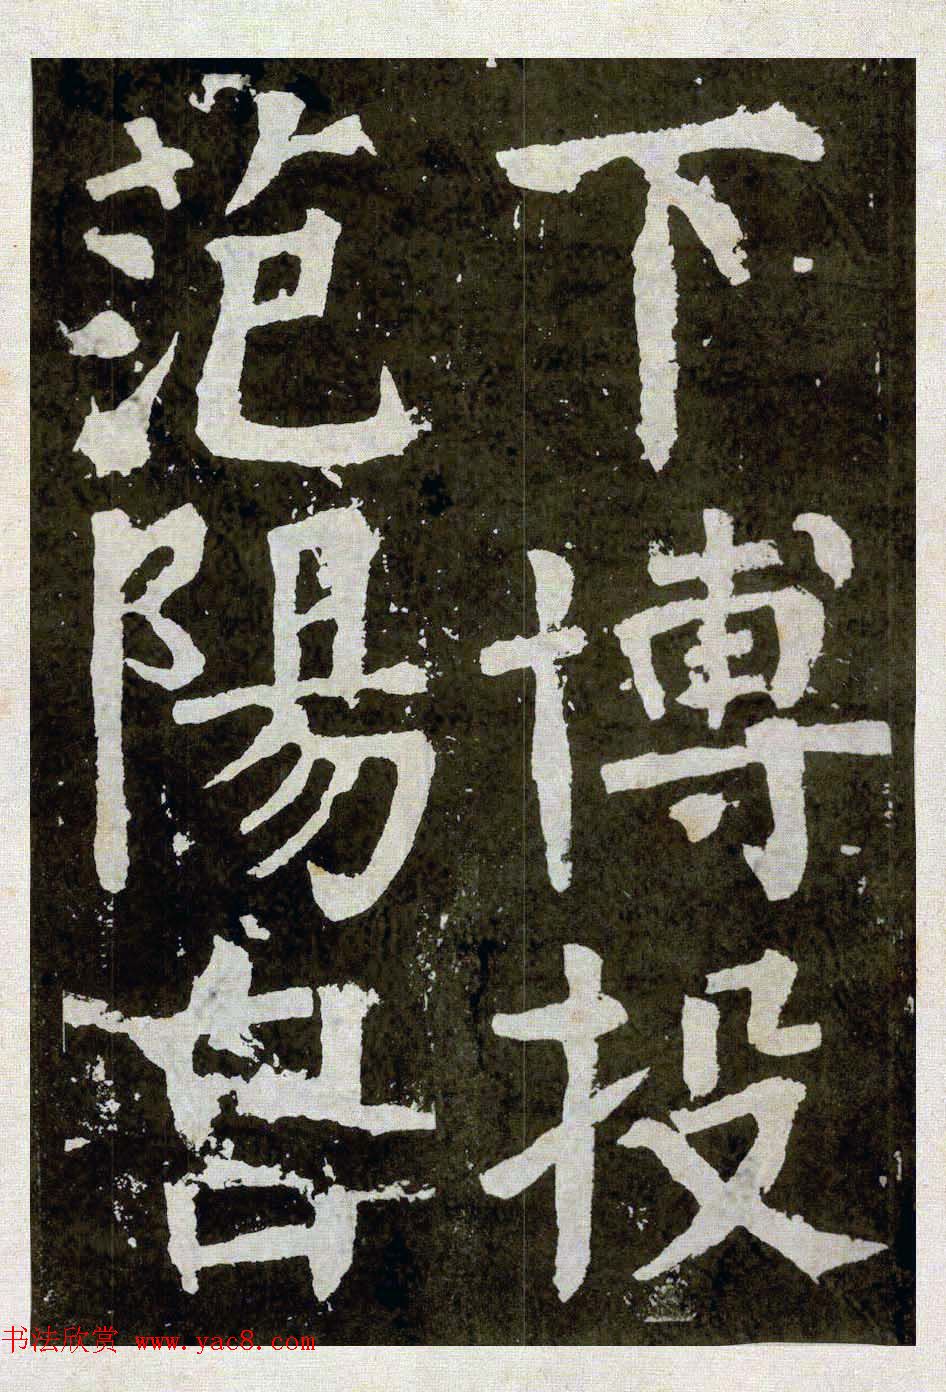 下博投
范陽宫
书法欣赏 www.yac8.com